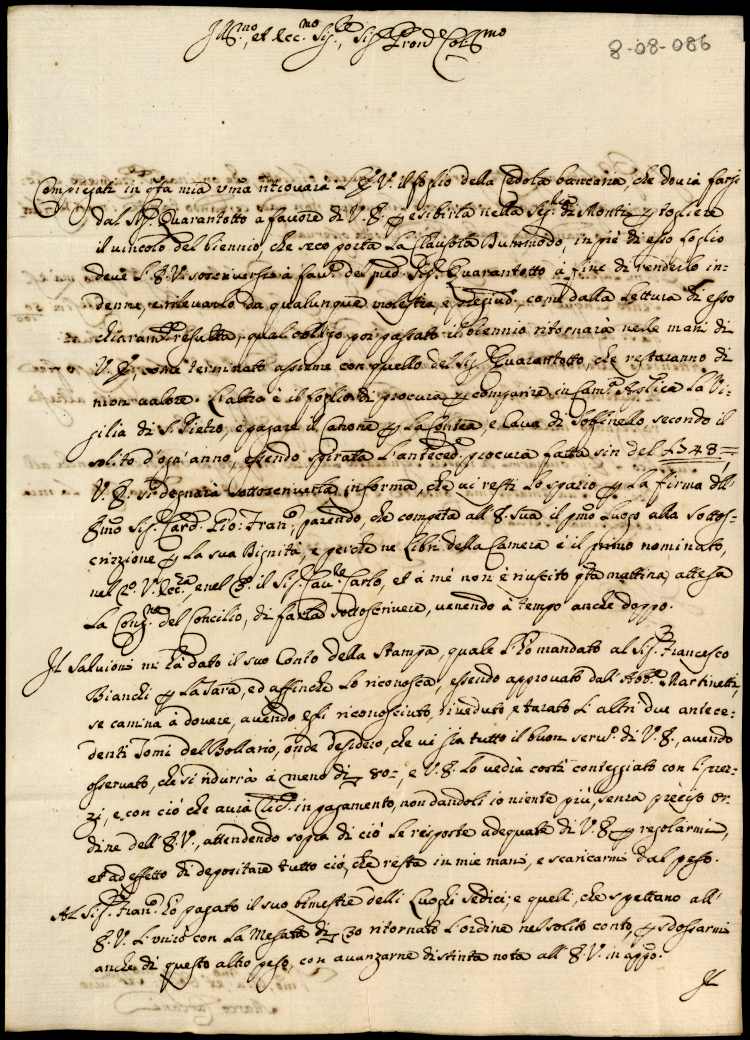 8-08-086
Ill.mo, et Ecc.mo Sig.re, Sig.r Pron e Col.mo
Compiegati in q.ta mia V.ma ritrovarà l'E.V. il foglio della Cedola bancaria, che dovrà farsi
dal Sig.r Quarantotto à favore di V.E. p esibirla nella Seg.ria di Monti p togliere
il vincolo del biennio, che seco porta la Clausola Dummodo, in piè di esso foglio
deve l'E.V. soscriversi à fav.e del med.o Sig.r Quarantotto à fine di renderlo in-
denne, e rilevarlo da qualunque molestia, e pregiud.o come dalla lettura di esso
chiaram.te risulta, qual obligo poi passato il biennio ritornarà nelle mani di
V.E., come terminato assieme con quello del Sig.r Quarantotto, che restaranno di
niun valore. L'altro è il foglio di procura p comparire in Cam.a Ap.lica la Vi-
gilia di S. Pietro, e pagare il Canone p la Contea, e Cava di Soffinello, secondo il
solito d'ogn'anno, essendo spirata l'anteced.e procura fatta sin del 1748=,
V.E. si degnarà sottoscriverla in forma, che vi resti lo spazio p la firma dell'
E.mo Sig.r Card. Gio: Fran.co, parendo, che competa all'E. Sua il p.mo luogo alla sottos-
crizzione p la sua Dignità, e perche ne Libri della Camera è il primo nominato,
nel 2.o V. Ecc.za, e nel 3.o il Sig.r Cav.re Carlo, et à me non è riuscito q.ta mattina, attesa
la Cong.ne del Concilio, di farla sottoscrivere, venendo à tempo anche doppo.
Il Salvioni mi hà dato il suo Conto della Stampa, quale l'hò mandato al Sig.r Francesco
Bianchi p la Tara, ed affinche lo riconosca, essendo approvato dall'Abb.e Martinetti,
se camina à dovere, avendo egli riconosciuto, riveduto, e tarato li altri due antece-
denti Tomi del Bollario, onde desidero, che vi sia tutto il buon serv.o di V.E., avendo
osservato, che si ridurrà à meno di 80=, e V.E. lo vedrà costì conteggiato con li prez-
zi, e con ciò che avrà in pagamento, non dandoli io niente più, senza preciso or-
dine dell'E.V., attendendo sopra di ciò le resposte adequate di V.E. p regolarmi,
et ad effetto di depositare tutto ciò, che resta in mie mani, e scaricarmi dal peso.
Al Sig.r Fran.co hò pagato il suo bimestre delli Luoghi sedici, e quelli, che spettano all'
E.V. l'unirò con la Mesata di 30 ritornato l'ordine nel solito conto, p sdossarmi
anche di questo altro peso, con avanzarne distinta nota all'E.V. in app.o.
Il